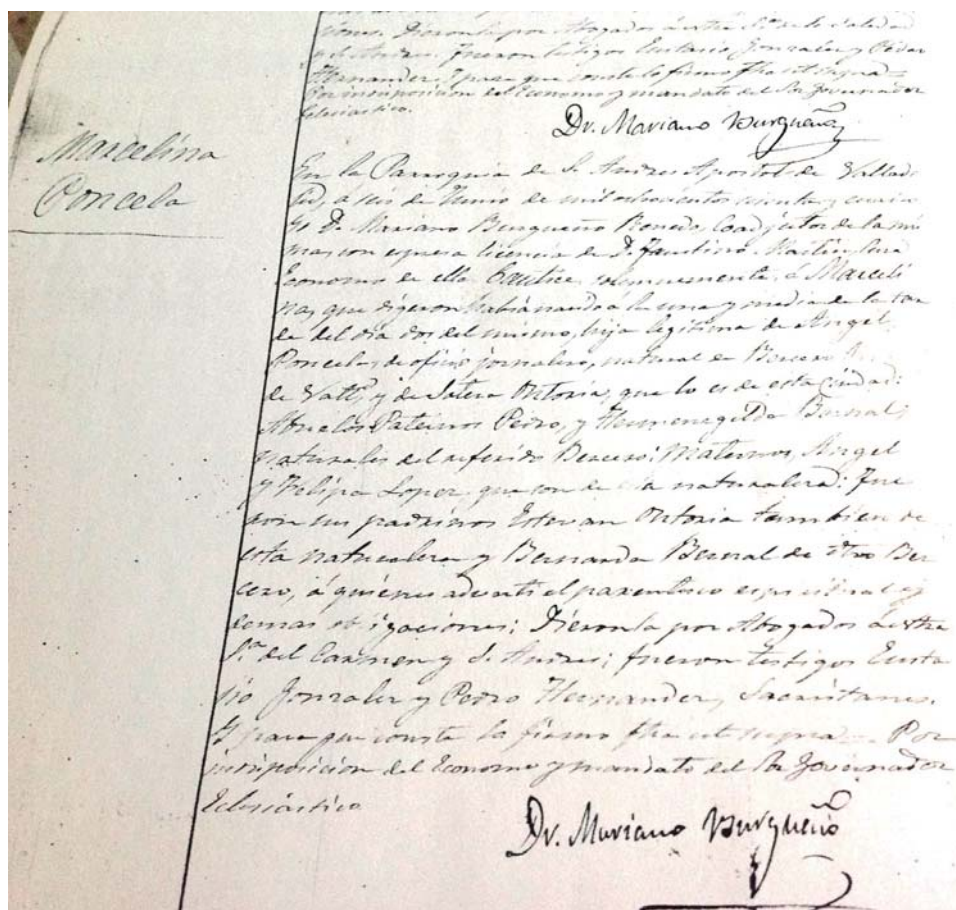 ciones. Dieronla por Abogados á ntra Sra de la Soledad
y S. Andres. Fueron testigos Eustasio Gonzalez y Pedro
Hernandez. Y para que conste lo firmo fha ut supra =
Por indisposicion del Economo y mandato del Sor Governador
Eclesiástico.
Dr. Mariano Burgueño
Marcelina
Poncela
En la Parroquia de S. Andres Apostol de Vallado
lid, á seis de Junio de mil ochocientos sesenta y
yo D. Mariano Burgueño Coadjutor de la mis
ma con espresa licencia de D. Faustino Cura
Economo de ella Bautice solemnemente, á Marceli
na, que digeron habia nacido á la una y media de la tar
de del dia dos del mismo, hija legitima de Angel
Poncela, de oficio jornalero, natural de Bercero
de Vallº, y de Ontoria, que lo es de esta ciudad:
Abuelos Paternos Pedro, y Hermenegilda Bernal,
naturales del referido Bercero; Maternos, Angel
y Felipa Lopez, que son de naturaleza: fue
ron sus padrinos Estevan Ontoria tambien de
esta naturaleza y Bernarda Bernal de dho Ber
cero, á quienes advertí el parentesco espiritual y
demas obligaciones; Dieronla por Abogados á ntra
Sra del Carmen y S. Andres; fueron testigos Eusta
sio Gonzalez y Pedro Hernandez, Sacristanes.
Y para que conste lo firmo fha ut supra = Por
indisposicion del Economo y mandato del Sor Governador
Eclesiástico
Dr. Mariano Burgueño